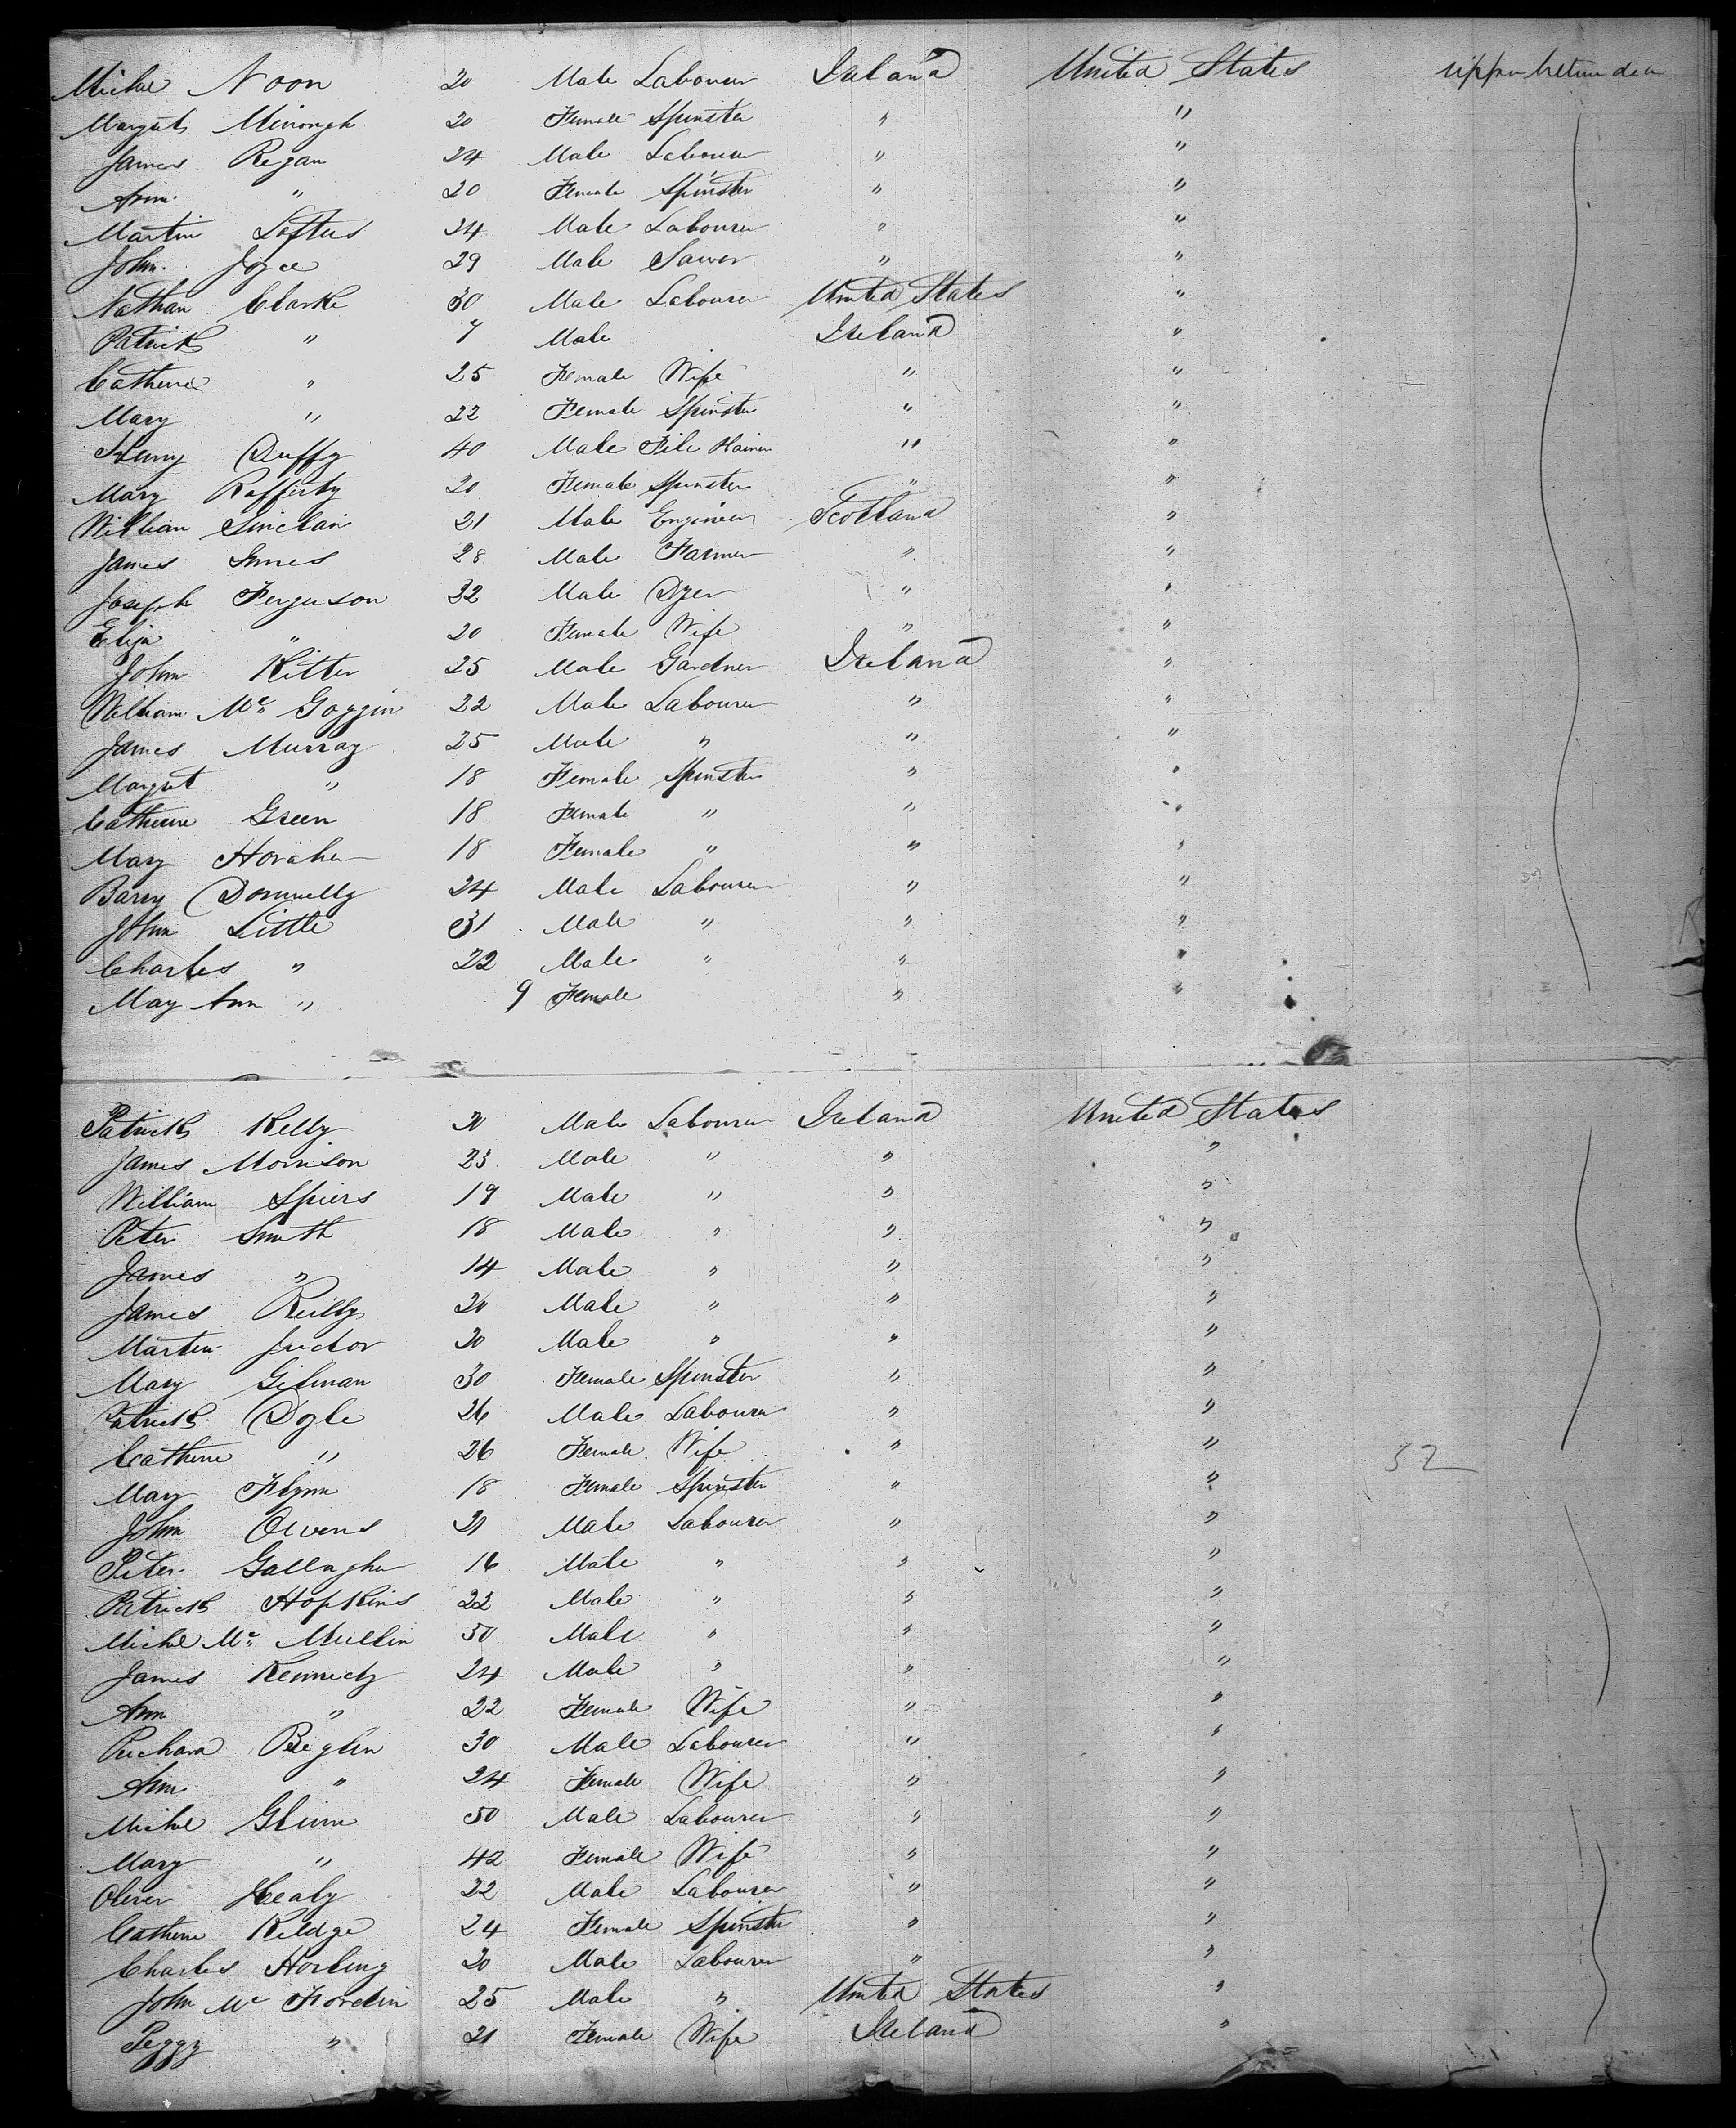 Michel Noon 20 Male Labourer Ireland United States upper between deck
Margret Minough 20 Female Spinster " "
James Regan 24 Male Labourer " "
Ann " 20 Female Spinster " "
Martin Loftus 24 Male Labourer " "
John Joyce 29 Male Sawer " "
Nathan Clarke 30 Male Labourer United States "
Patrick " 7 Male Ireland "
Catherine " 25 Female Wife " "
Mary " 22 Female Spinster " "
Henry Duffy 40 Male " "
Mary Rafferty 20 Female Spinster " "
William Sinclair 21 Male Engineer Scotland "
James Innes 28 Male Farmer " "
Joseph Ferguson 32 Male Dyer " "
Eliza " 20 Female Wife " "
John Ritter 25 Male Gardner Ireland "
William Mc Goggin 22 Male Labourer " "
James Murray 25 Male " " "
Margret " 18 Female Spinster " "
Catherine Green 18 Female " " "
Mary Horahen 18 Female " " "
Barny Donnelly 24 Male Labourer " "
John Little 31 Male " " "
Charles " 22 Male " " "
Mary Ann " 9 Female " "
Patrick Kelly 20 Male Labourer Ireland United States
James Morrison 23 Male " " "
William Spiers 19 Male " " "
Peter Smith 18 Male " " "
James " 14 Male " " "
James Reilly 20 Male " " "
Martin 20 Male " " "
Mary Gilman 30 Female Spinster " "
Patrick Doyle 26 Male Labourer " "
Catherine " 26 Female Wife " "
32
Mary Flynn 18 Female Spinster " "
John Owens 21 Male Labourer " "
Peter Gallagher 16 Male " " "
Patrick Hopkins 22 Male " " "
Michel Mc Mullin 50 Male " " "
James Kennedy 24 Male " " "
Ann " 22 Female Wife " "
Richard Beglin 30 Male Labourer " "
Ann " 24 Female Wife " "
Michel Glinn 50 Male Labourer " "
Mary " 42 Female Wife " "
Oliver Healy 22 Male Labourer " "
Catherine Kildge 24 Female Spinster " "
Charles Horling 20 Male Labourer " "
John Mc 25 Male " United States "
Peggy " 21 Female Wife Ireland "